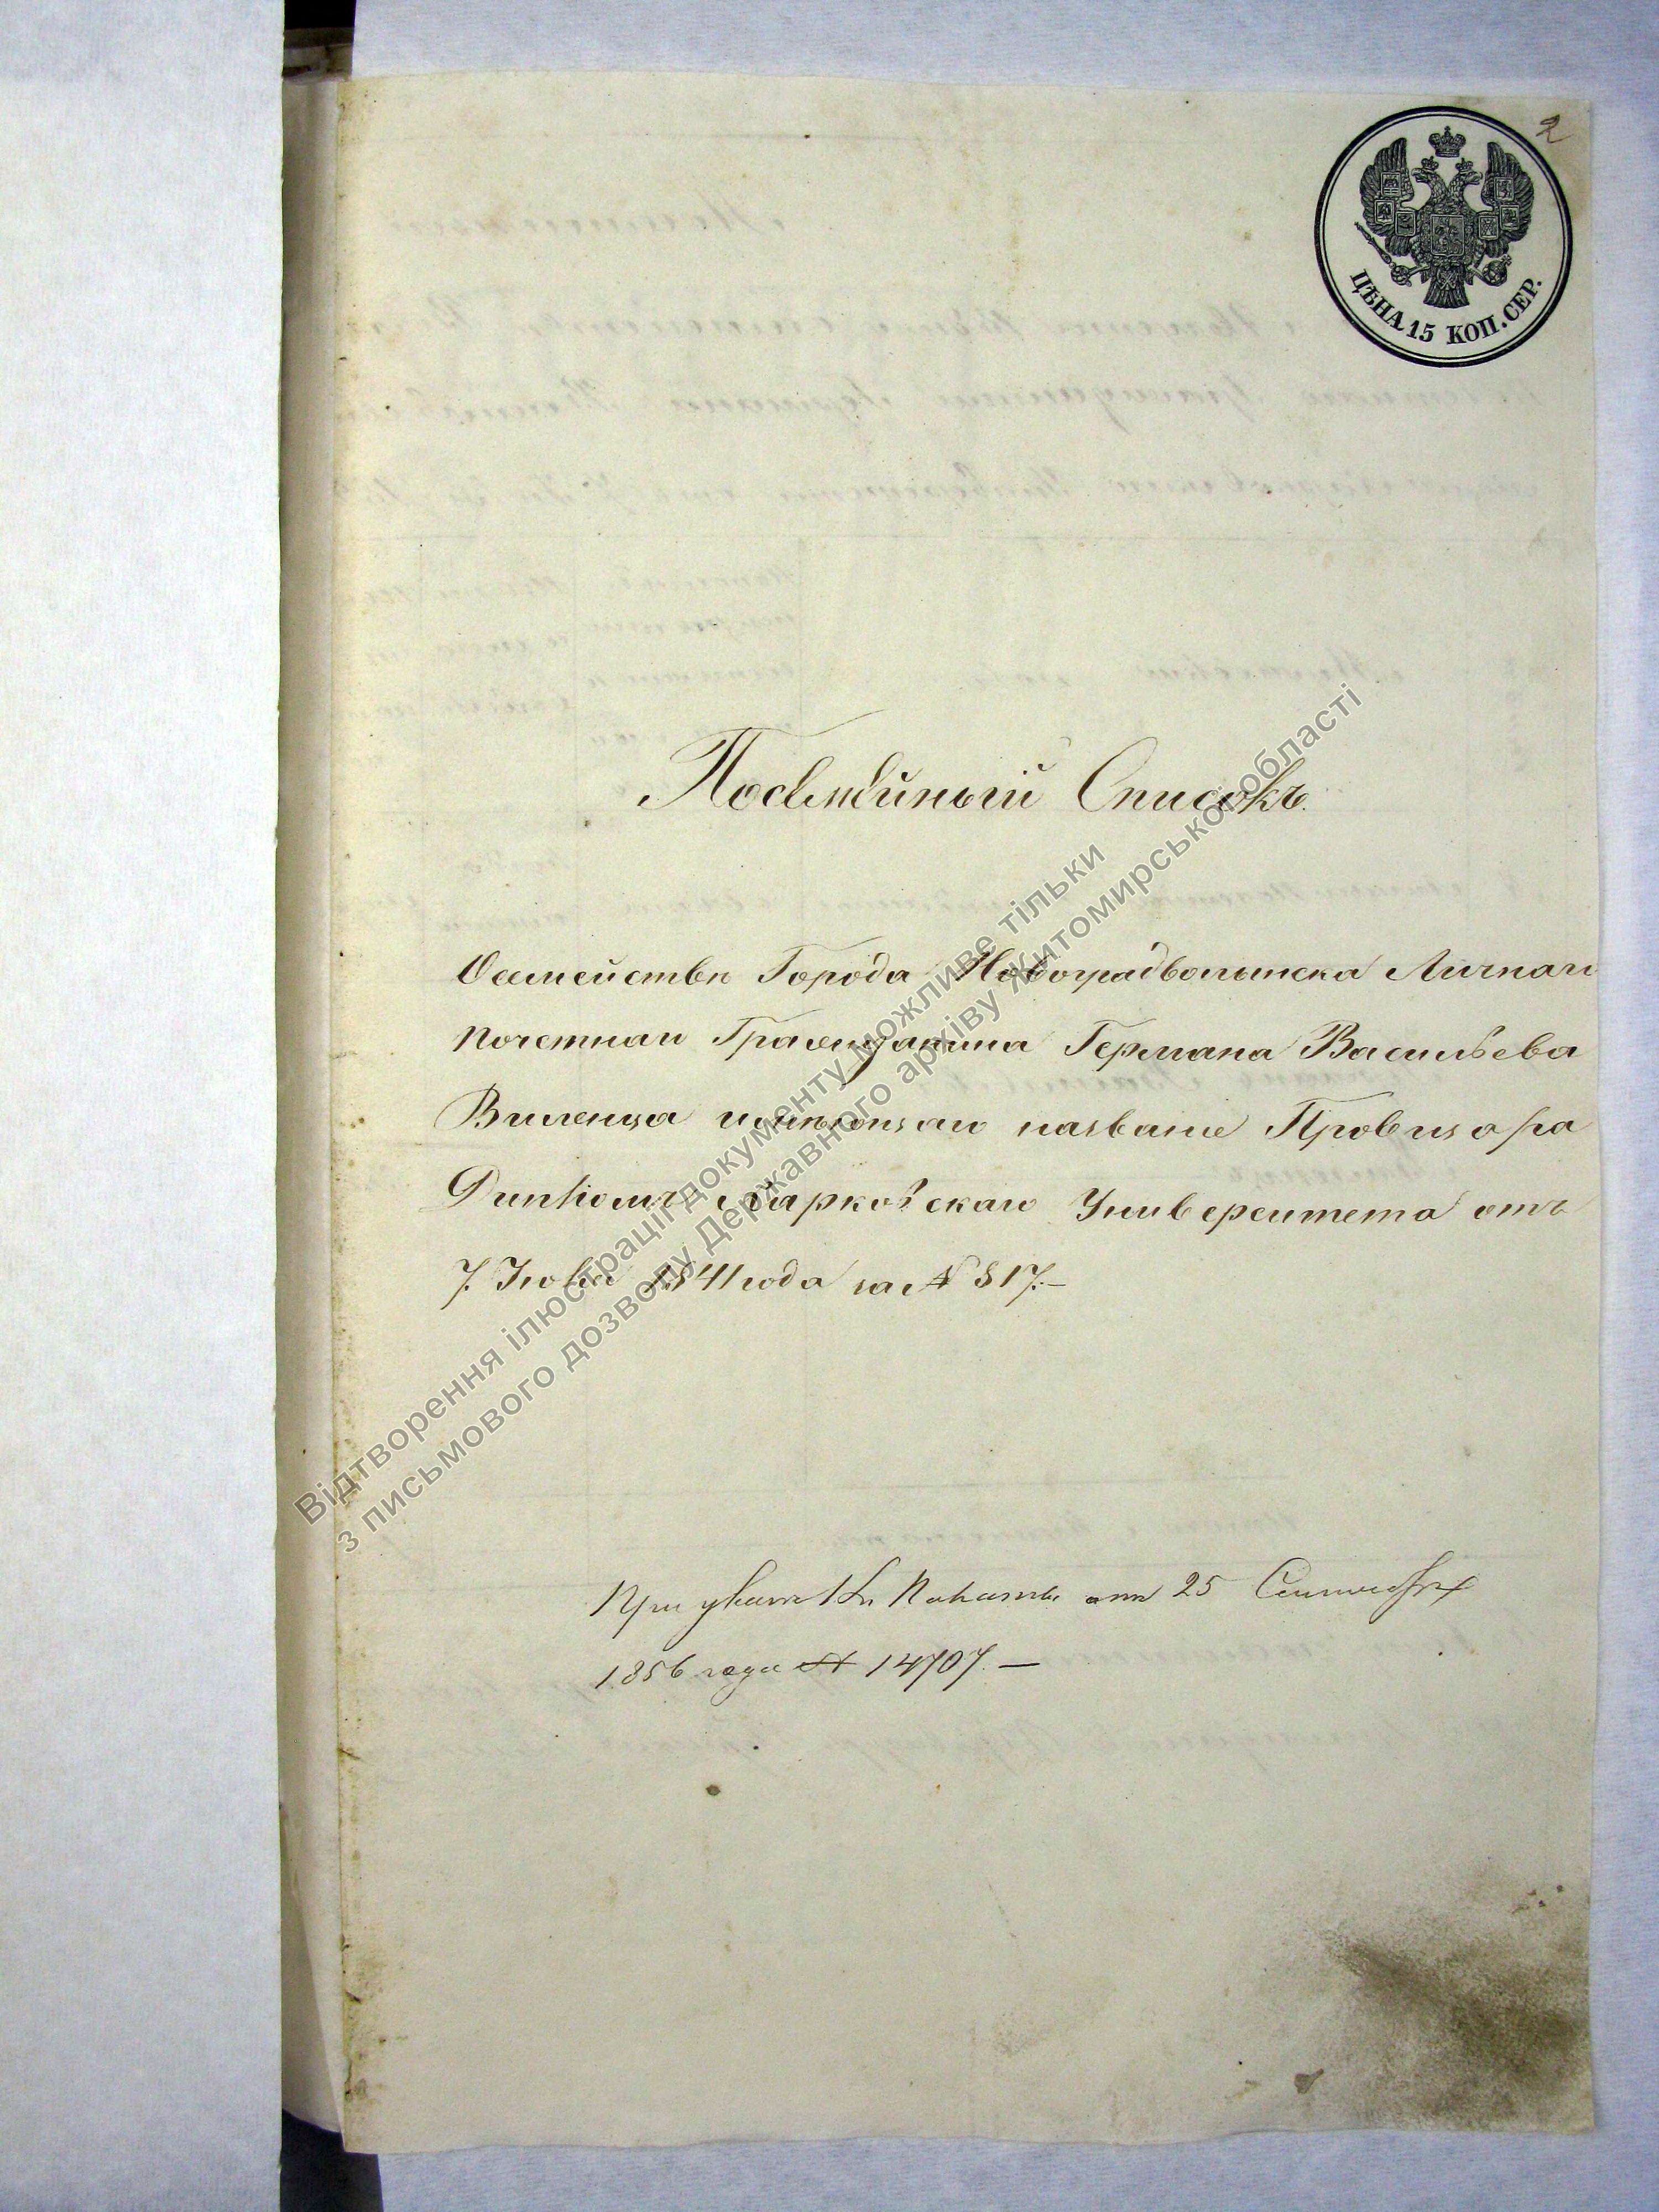 2
ЦѢНА 15 КОП. СЕР.
Посемейный Списокъ.
О семействѣ Города Новоградволынска Личнаго
почетнаго Гражданина Германа Васильева
Виленца имѣющаго название Провизора
Диплому Харковскаго Университета отъ
7. 1841 года за № 817.—
При указѣ Палаты отъ 25 Сентября
1856 года № 14707. —
Відтворення ілюстрації документу можливе тільки
з письмового дозволу Державного архіву Житомирської області